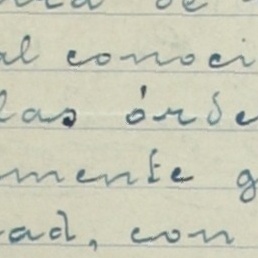 al conoci
las órde
mente g
ad, con